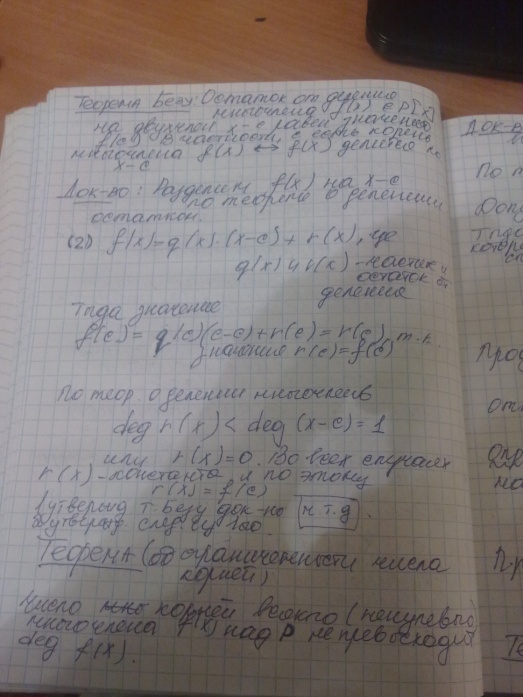 Теорема Безу: Остаток от деления
многочлена f(x) ∈ P[x]
на двухчлен x-c равен значению
f(c). В частности, c есть корень
многочлена f(x) ↔ f(x) делится на
x-c
Док-во: Разделим f(x) на x-c
по теореме о делении
остатком.
(2) f(x)=q(x)·(x-c)+r(x), где
q(x) и r(x) - частное и
остаток от
деления
Тогда значение
f(c)= q(c)(c-c)+r(c)=r(c), т.к.
значения r(c)=f(c)
По теор. о делении многочленов
deg r(x) < deg (x-c)=1
или r(x)=0. Во всех случаях
r(x)-константа и по этому
r(x)=f(c)
1 утвержд т. Безу док-но ч.т.д.
утвержд. след. из 1го.
Теорема (об ограниченности числа
корней)
Число корней всякого (ненулевого)
многочлена f(x) над P не превосходит
deg f(x).
Док-во
По т
Допу
Тогда
котор
сл
Прод
отк
Опр
на
П-р
Те